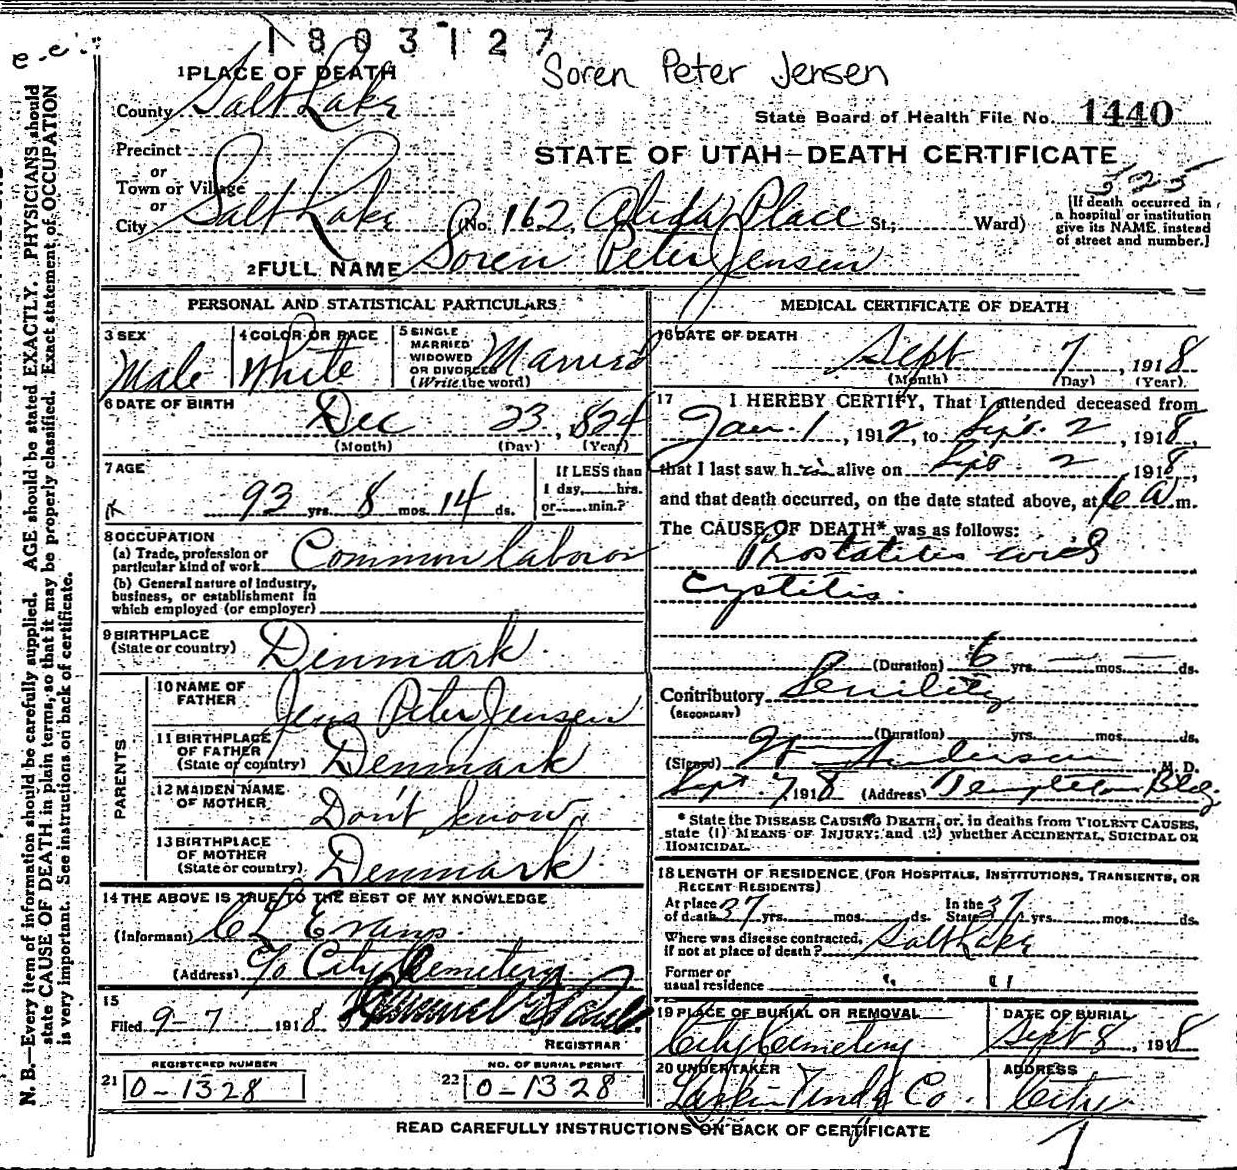 1803127
e-e
Soren Peter Jensen
1 PLACE OF DEATH
County Salt Lake
State Board of Health File No. 1440
Precinct
or
Town or Village
or
City Salt Lake
STATE OF UTAH—DEATH CERTIFICATE
525
(No. 162 Alida Place St.; Ward)
[If death occurred in a hospital or institution give its NAME instead of street and number.]
2 FULL NAME Soren Peter Jensen
PERSONAL AND STATISTICAL PARTICULARS
3 SEX Male
4 COLOR OR RACE White
5 SINGLE MARRIED WIDOWED OR DIVORCED (Write the word) Married
6 DATE OF BIRTH
Dec 23, 1824
(Month) (Day) (Year)
7 AGE
93 yrs. 8 mos. 14 ds.
If LESS than 1 day, hrs. or min.?
8 OCCUPATION
(a) Trade, profession or particular kind of work Common laboror
(b) General nature of industry, business, or establishment in which employed (or employer)
9 BIRTHPLACE (State or country) Denmark
PARENTS
10 NAME OF FATHER Jens Peter Jensen
11 BIRTHPLACE OF FATHER (State or country) Denmark
12 MAIDEN NAME OF MOTHER Don't know
13 BIRTHPLACE OF MOTHER (State or country) Denmark
14 THE ABOVE IS TRUE TO THE BEST OF MY KNOWLEDGE
(Informant) Evans
(Address) c/o City Cemetery
15
Filed 9-7 1918
REGISTRAR
REGISTERED NUMBER
21 0-1328
NO. OF BURIAL PERMIT
22 0-1328
MEDICAL CERTIFICATE OF DEATH
16 DATE OF DEATH
Sept 7, 1918
(Month) (Day) (Year)
17 I HEREBY CERTIFY, That I attended deceased from
Jan. 1, 1912, to Sept. 2, 1918,
that I last saw him alive on Sept 2, 1918,
and that death occurred, on the date stated above, at 6 a m.
The CAUSE OF DEATH* was as follows:
Prostatitis with
cystitis.
(Duration) 6 yrs. — mos. — ds.
Contributory Senility
(SECONDARY)
(Duration) yrs. mos. ds.
(Signed) Anderson, M. D.
Sept. 7, 1918 (Address) Templeton Bldg.
* State the DISEASE CAUSING DEATH, or, in deaths from VIOLENT CAUSES,
state (1) MEANS OF INJURY; and (2) whether ACCIDENTAL, SUICIDAL OR
HOMICIDAL.
18 LENGTH OF RESIDENCE (FOR HOSPITALS, INSTITUTIONS, TRANSIENTS, OR
RECENT RESIDENTS)
At place of death 37 yrs. mos. ds. In the State 37 yrs. mos. ds.
Where was disease contracted, if not at place of death? Salt Lake
Former or usual residence " "
19 PLACE OF BURIAL OR REMOVAL
City Cemetery
DATE OF BURIAL
Sept 8, 1918
20 UNDERTAKER
Co.
ADDRESS
City
READ CAREFULLY INSTRUCTIONS ON BACK OF CERTIFICATE
1
N. B.—Every item of information should be carefully supplied. AGE should be stated EXACTLY. PHYSICIANS should
state CAUSE OF DEATH in plain terms, so that it may be properly classified. Exact statement of OCCUPATION
is very important. See instructions on back of certificate.